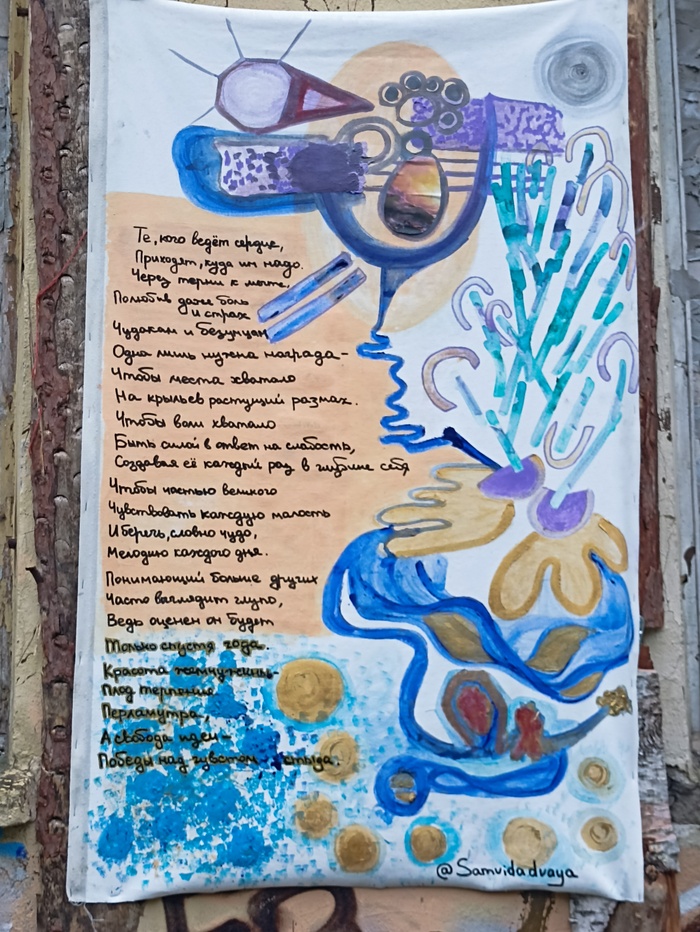 Те, кого ведёт сердце,
Приходят, куда им надо.
Через терни к мечте,
Полюбив даже боль
и страх
Чудакам и безумцам
Одна лишь нужна награда-
Чтобы места хватало
На крыльев растущий размах.
Чтобы воли хватало
Быть силой в ответ на слабость,
Создавая её каждый раз в глубине себя
Чтобы частью великого
Чувствовать каждую малость
И беречь, словно чудо,
Мелодию каждого дня.
Понимающий больше других
Часто выглядит глупо,
Ведь оценен он будет
Только спустя года.
Красота жемчужины-
Плод терпения
Перламутра,
А свобода идеи-
Победы над чувством стыда.
@Samvidadvaya